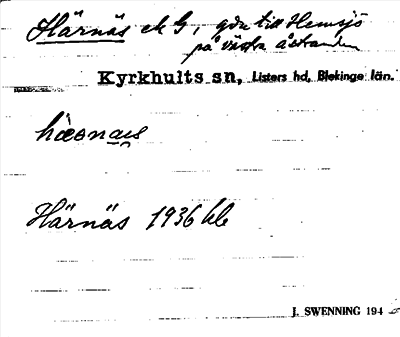 Härnäs ek G, gdn till Hemsjö
på västra åstranden
Kyrkhults sn, Listers hd, Blekinge län.
Härnäs 1936 kb
J. SWENNING 194